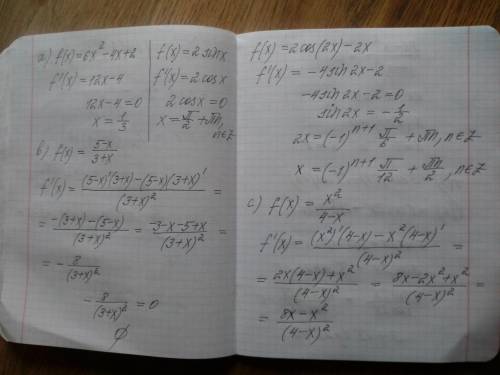 a) f(x)=6x²-4x+2
f'(x)=12x-4
12x-4=0
x=1/3
f(x)=2sinx
f'(x)=2cosx
2cosx=0
x=π/2+πn, n∈Z
b) f(x)=(5-x)/(3+x)
f'(x)=((5-x)'(3+x)-(5-x)(3+x)')/(3+x)²=
=(-(3+x)-(5-x))/(3+x)²=(-3-x-5+x)/(3+x)²=
=-8/(3+x)²
-8/(3+x)²=0
∅
f(x)=2cos(2x)-2x
f'(x)=-4sin2x-2
-4sin2x-2=0
sin2x=-1/2
2x=(-1)ⁿ⁺¹ π/6+πn, n∈Z
x=(-1)ⁿ⁺¹ π/12+πn/2, n∈Z
c) f(x)=x²/(4-x)
f'(x)=((x²)'(4-x)-x²(4-x)')/(4-x)²=
=(2x(4-x)+x²)/(4-x)²=(8x-2x²+x²)/(4-x)²=
=(8x-x²)/(4-x)²